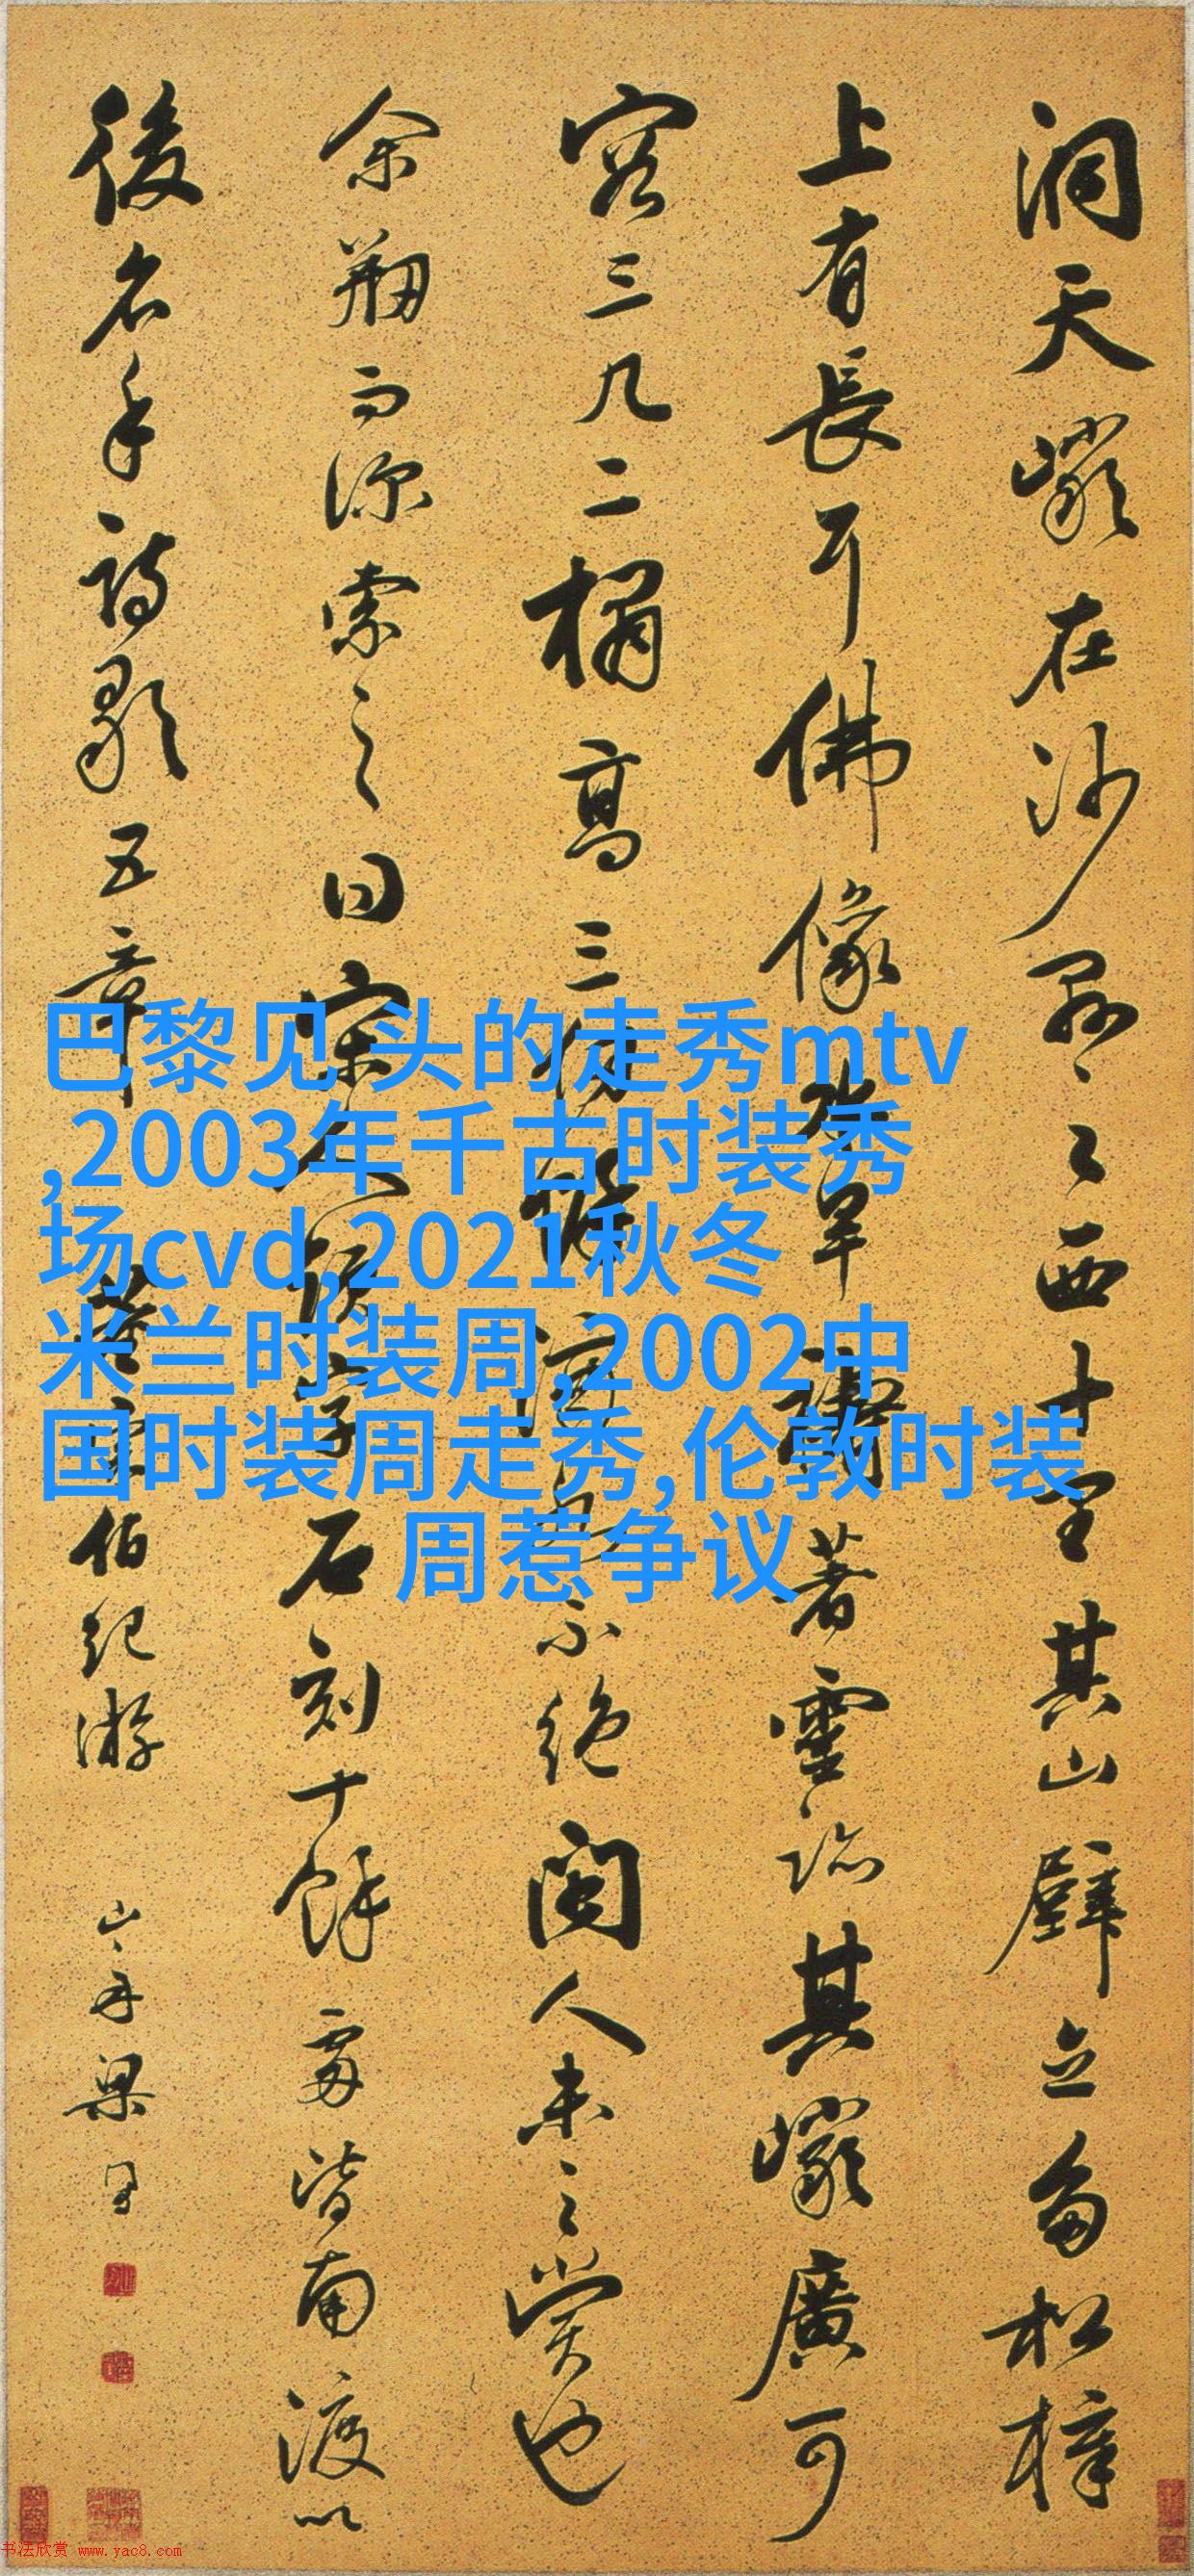 洞天巖在沙縣之西十里其山壁立多松樟
上有長耳佛像水旱禱著靈跡其巖廣可
容三几二榻高三仞
不絕閩人未之賞也
余芻而深索之曰宋人題字石刻十餘處皆南渡以
後名手詩歌五章
伯紀游
山舟梁同書
巴黎见 头的走秀mtv
,2003年千古时装秀
场cvd,2021秋冬
米兰时装周,2002中
国时装周走秀,伦敦时装
周惹争议
书法欣赏 www.yac8.com